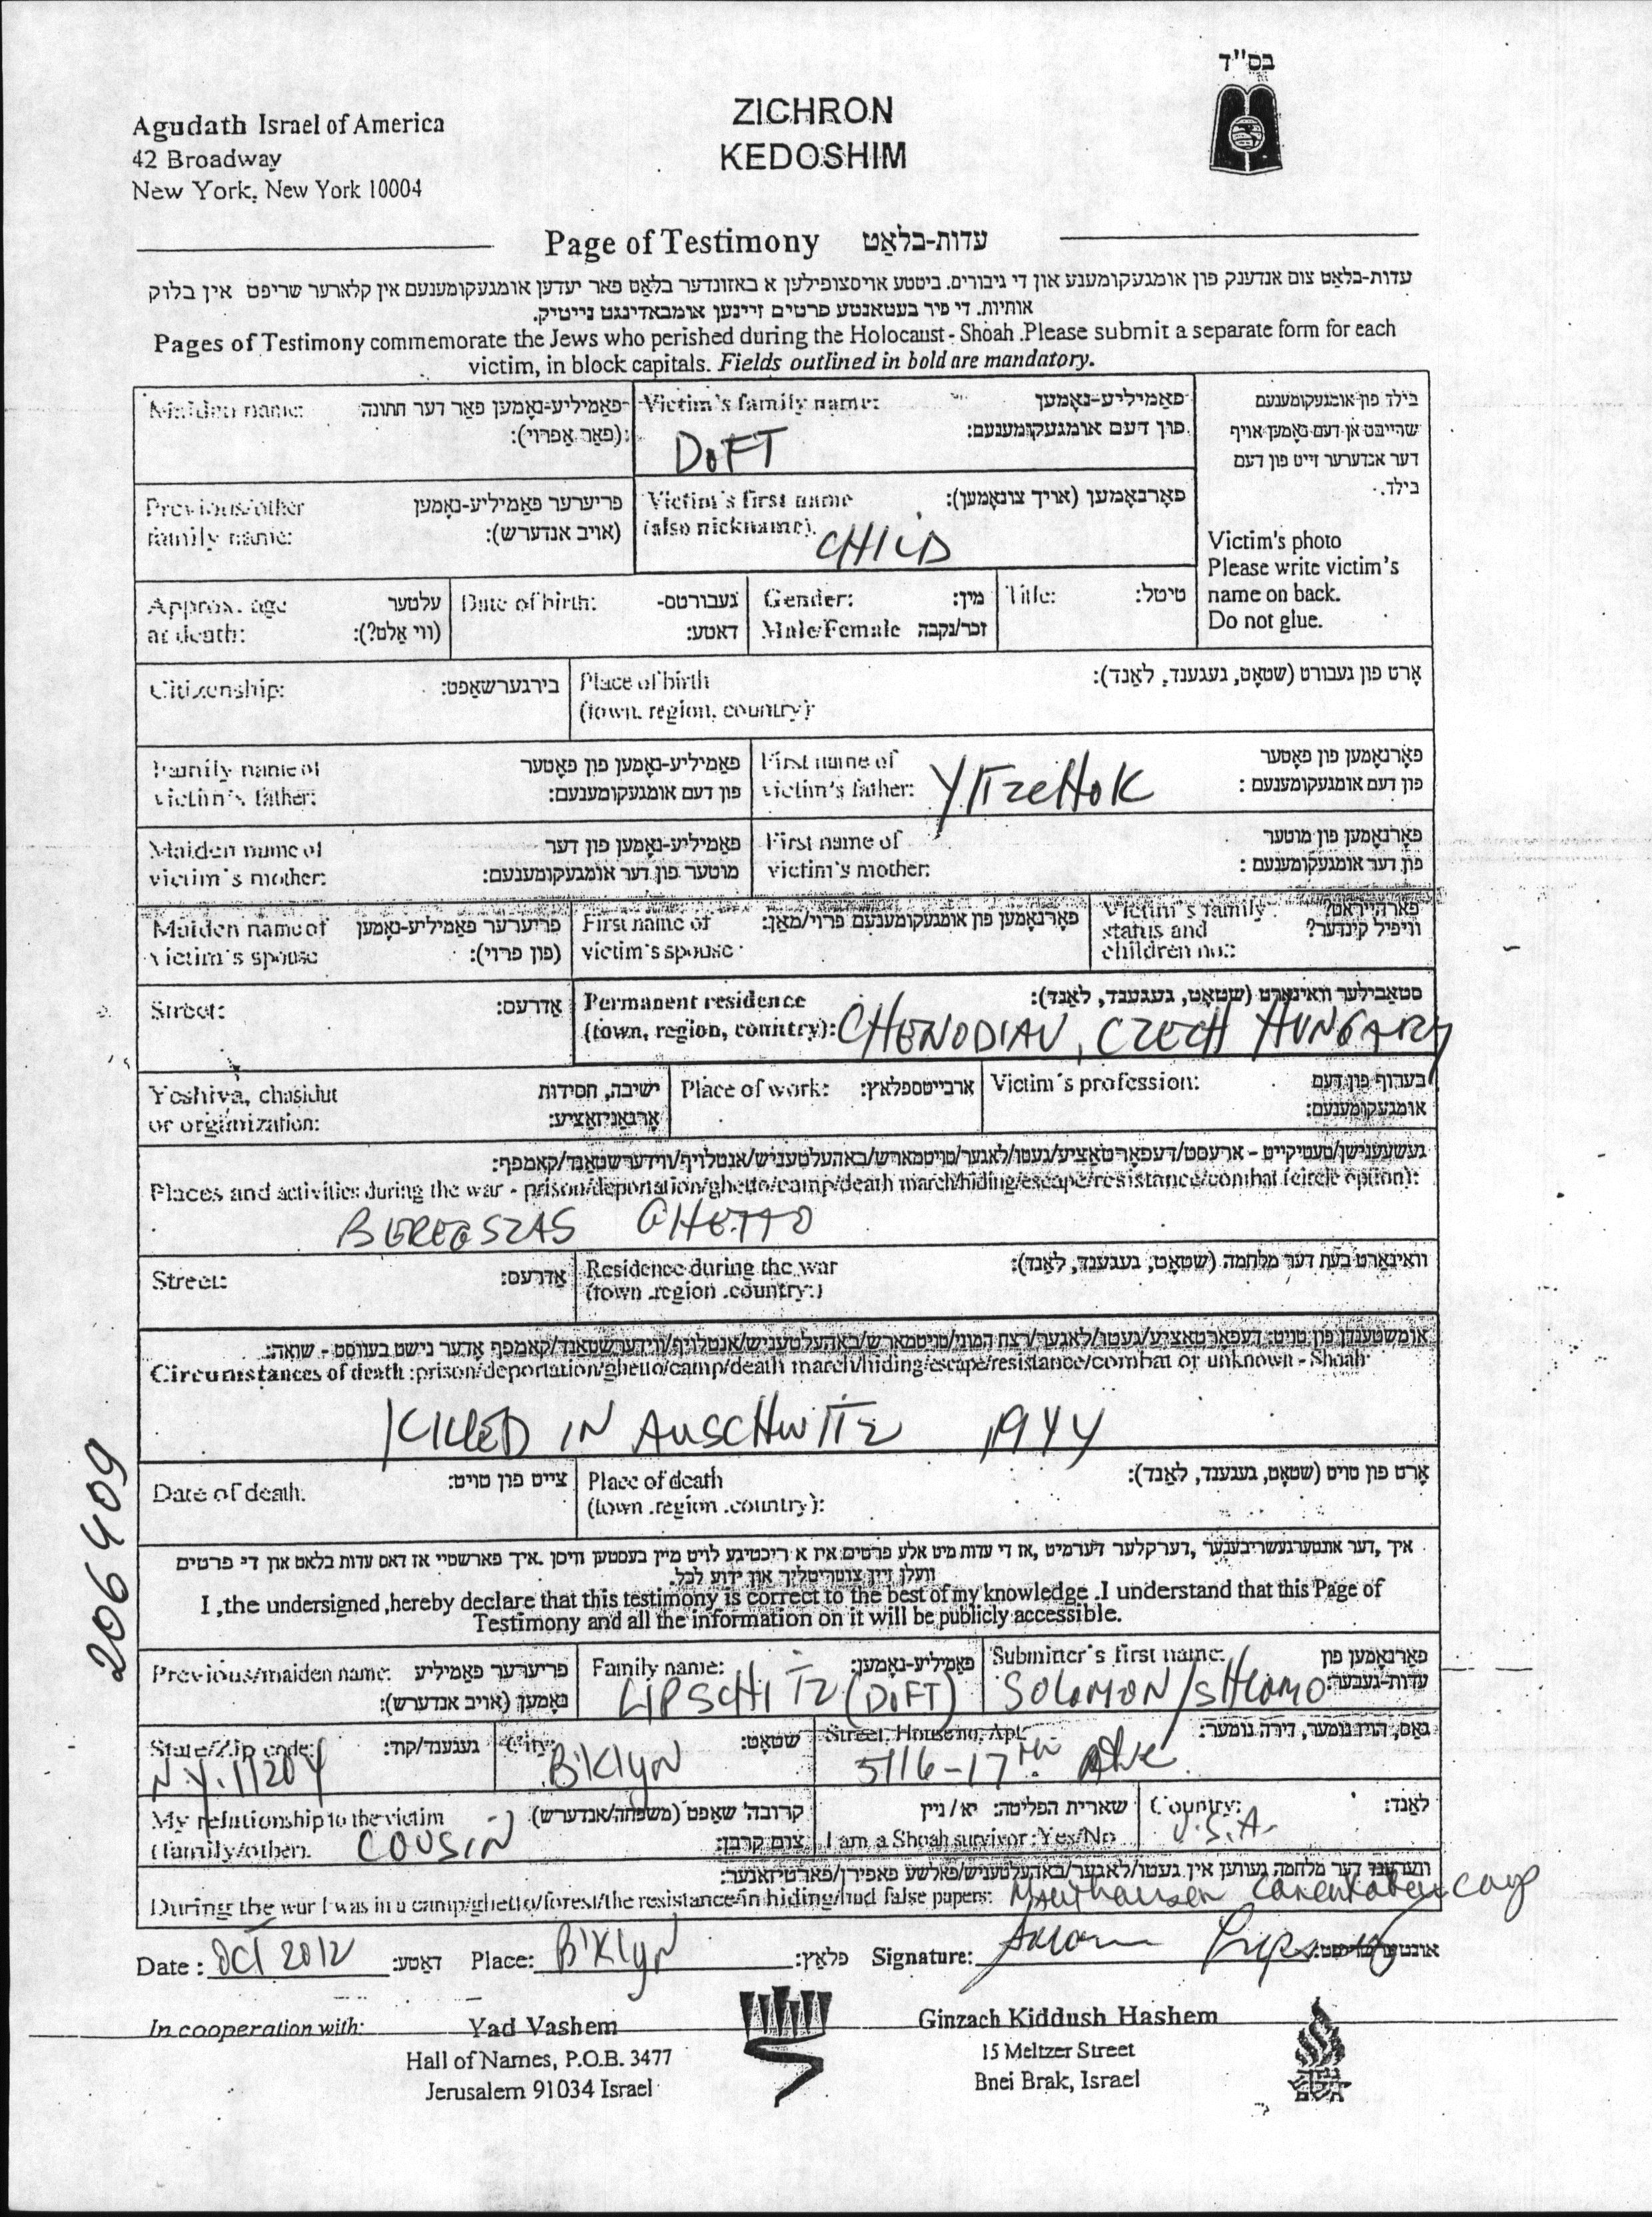 בס"ד
Agudath Israel of America
42 Broadway
New York, New York 10004
ZICHRON
KEDOSHIM
Page of Testimony עדות-בלאַט
עדות-בלאַט צום אנדענק פון אומגעקומענע און די גיבורים. ביטטע אויסצופילען א באזונדער בלאַט פאר יעדען אומגעקומענעם אין קלארער שריפט אין בלוק
אותיות. די פיר בעטאנטע פרטים זיינען אומבאדינגט נייטיק.
Pages of Testimony commemorate the Jews who perished during the Holocaust - Shoah .Please submit a separate form for each
victim, in block capitals. Fields outlined in bold are mandatory.
Maiden name: פאַמיליע-נאָמען פאַר דער חתונה
(פאַר אַפרוי):
Victim's family name: פאַמיליע-נאָמען
פון דעם אומגעקומענעם:
DOFT
Previous/other פריערער פאַמיליע-נאָמען
family name: (אויב אנדערש):
Victim's first name פאָרנאָמען (אויך צונאָמען):
(also nickname). CHILD
בילד פון אומגעקומענעם
שרייבט אן דעם נאָמען אויף
דער אנדערער זייט פון דעם
בילד.
Victim's photo
Please write victim's
name on back.
Do not glue.
Approx. age עלטער
at death: (ווי אַלט?):
Date of birth: געבורטס-
דאטע:
Gender: מין:
Male/Female זכר/נקבה
Title: טיטל:
Citizenship: בירגערשאַפט:
Place of birth אָרט פון געבורט (שטאָט, געגענד, לאַנד):
(town, region, country):
Family name of פאַמיליע-נאָמען פון פאָטער
victim's father: פון דעם אומגעקומענעם:
First name of פאָרנאָמען פון פאָטער
victim's father: YITZCHOK פון דעם אומגעקומענעם :
Maiden name of פאַמיליע-נאָמען פון דער
victim's mother: מוטער פון דער אומגעקומענעם:
First name of פאָרנאָמען פון מוטער
victim's mother: פון דער אומגעקומענעם :
Maiden name of פריערער פאַמיליע-נאָמען
victim's spouse (פון פרוי):
First name of פאָרנאָמען פון אומגעקומענעם פרוי/מאַן:
victim's spouse
Victim's family פארהייראט?
status and וויפיל קינדער?
children no.:
Street: אַדרעס:
Permanent residence סטאַבילער וואוינאָרט (שטאָט, געגענד, לאַנד):
(town, region, country): CHENODIAV, CZECH HUNGARY
Yeshiva, chasidut ישיבה, חסידות
or organization: אָרגאַניזאַציע:
Place of work: ארבייטספלאַץ:
Victim's profession: בערוף פון דעם
אומגעקומענעם:
געשעענישן/טעטיקייט - ארעסט/דעפאָרטאַציע/געטו/לאגער/טויטמארש/באהעלטעניש/אנטלויף/ווידערשטאַנד/קאמפף:
Places and activities during the war - prison/deportation/ghetto/camp/death march/hiding/escape/resistance/combat (circle option):
BEREGSZAS GHETTO
Street: אַדרעס:
Residence during the war וואוינאָרט בעת דער מלחמה (שטאָט, געגענד, לאַנד):
(town .region .country:)
אומשטענדן פון טויט: דעפאָרטאַציע/געטו/לאגער/רצח המוני/טויטמארש/באהעלטעניש/אנטלויף/ווידערשטאַנד/קאמפף אָדער נישט בעוואוסט - שואה:
Circumstances of death :prison/deportation/ghetto/camp/death march/hiding/escape/resistance/combat or unknown - Shoah
KILLED IN AUSCHWITZ 1944
Date of death. צייט פון טויט:
Place of death אָרט פון טויט (שטאָט, געגענד, לאַנד):
(town .region .country):
206409
איך ,דער אונטערגעשריבענער ,דערקלער דערמיט ,אז די עדות מיט אלע פרטים איז א ריכטיגע לויט מיין בעסטען וויסן .איך פארשטיי אז דאס עדות בלאט און די פרטים
וועלן זיין צוטריטליך און ידוע לכל.
I ,the undersigned ,hereby declare that this testimony is correct to the best of my knowledge .I understand that this Page of
Testimony and all the information on it will be publicly accessible.
Previous/maiden name: פריערער פאַמיליע
נאָמען (אויב אנדערש):
Family name: פאַמיליע-נאָמען:
LIPSCHITZ (DOFT)
Submitter's first name: פאָרנאָמען פון
עדות-געבער:
SOLOMON/SHLOMO
State/Zip code: געגענד/קוד:
N.Y. 11204
City: שטאָט:
B'KLYN
Street, House no, Apt. גאַס, הויז נומער, דירה נומער:
5116-17TH AVE.
My relationship to the victim קרובה'שאַפט (משפּחה/אנדערש)
(family/other). COUSIN צום קרבן:
שארית הפליטה: יא/ניין
I am a Shoah survivor :Yes/No
Country: לאַנד:
U.S.A.
ווערענד דער מלחמה געווען אין געטו/לאגער/באהעלטעניש/פאלשע פאפירן/פארטיזאנער:
During the war I was in a camp/ghetto/forest/the resistance/in hiding/had false papers: Mauthausen camp
Date : OCT 2012 דאַטע: Place: B'KLYN פלאַץ: Signature: אונטערשריפט:
In cooperation with:
Yad Vashem
Hall of Names, P.O.B. 3477
Jerusalem 91034 Israel
Ginzach Kiddush Hashem
15 Meltzer Street
Bnei Brak, Israel